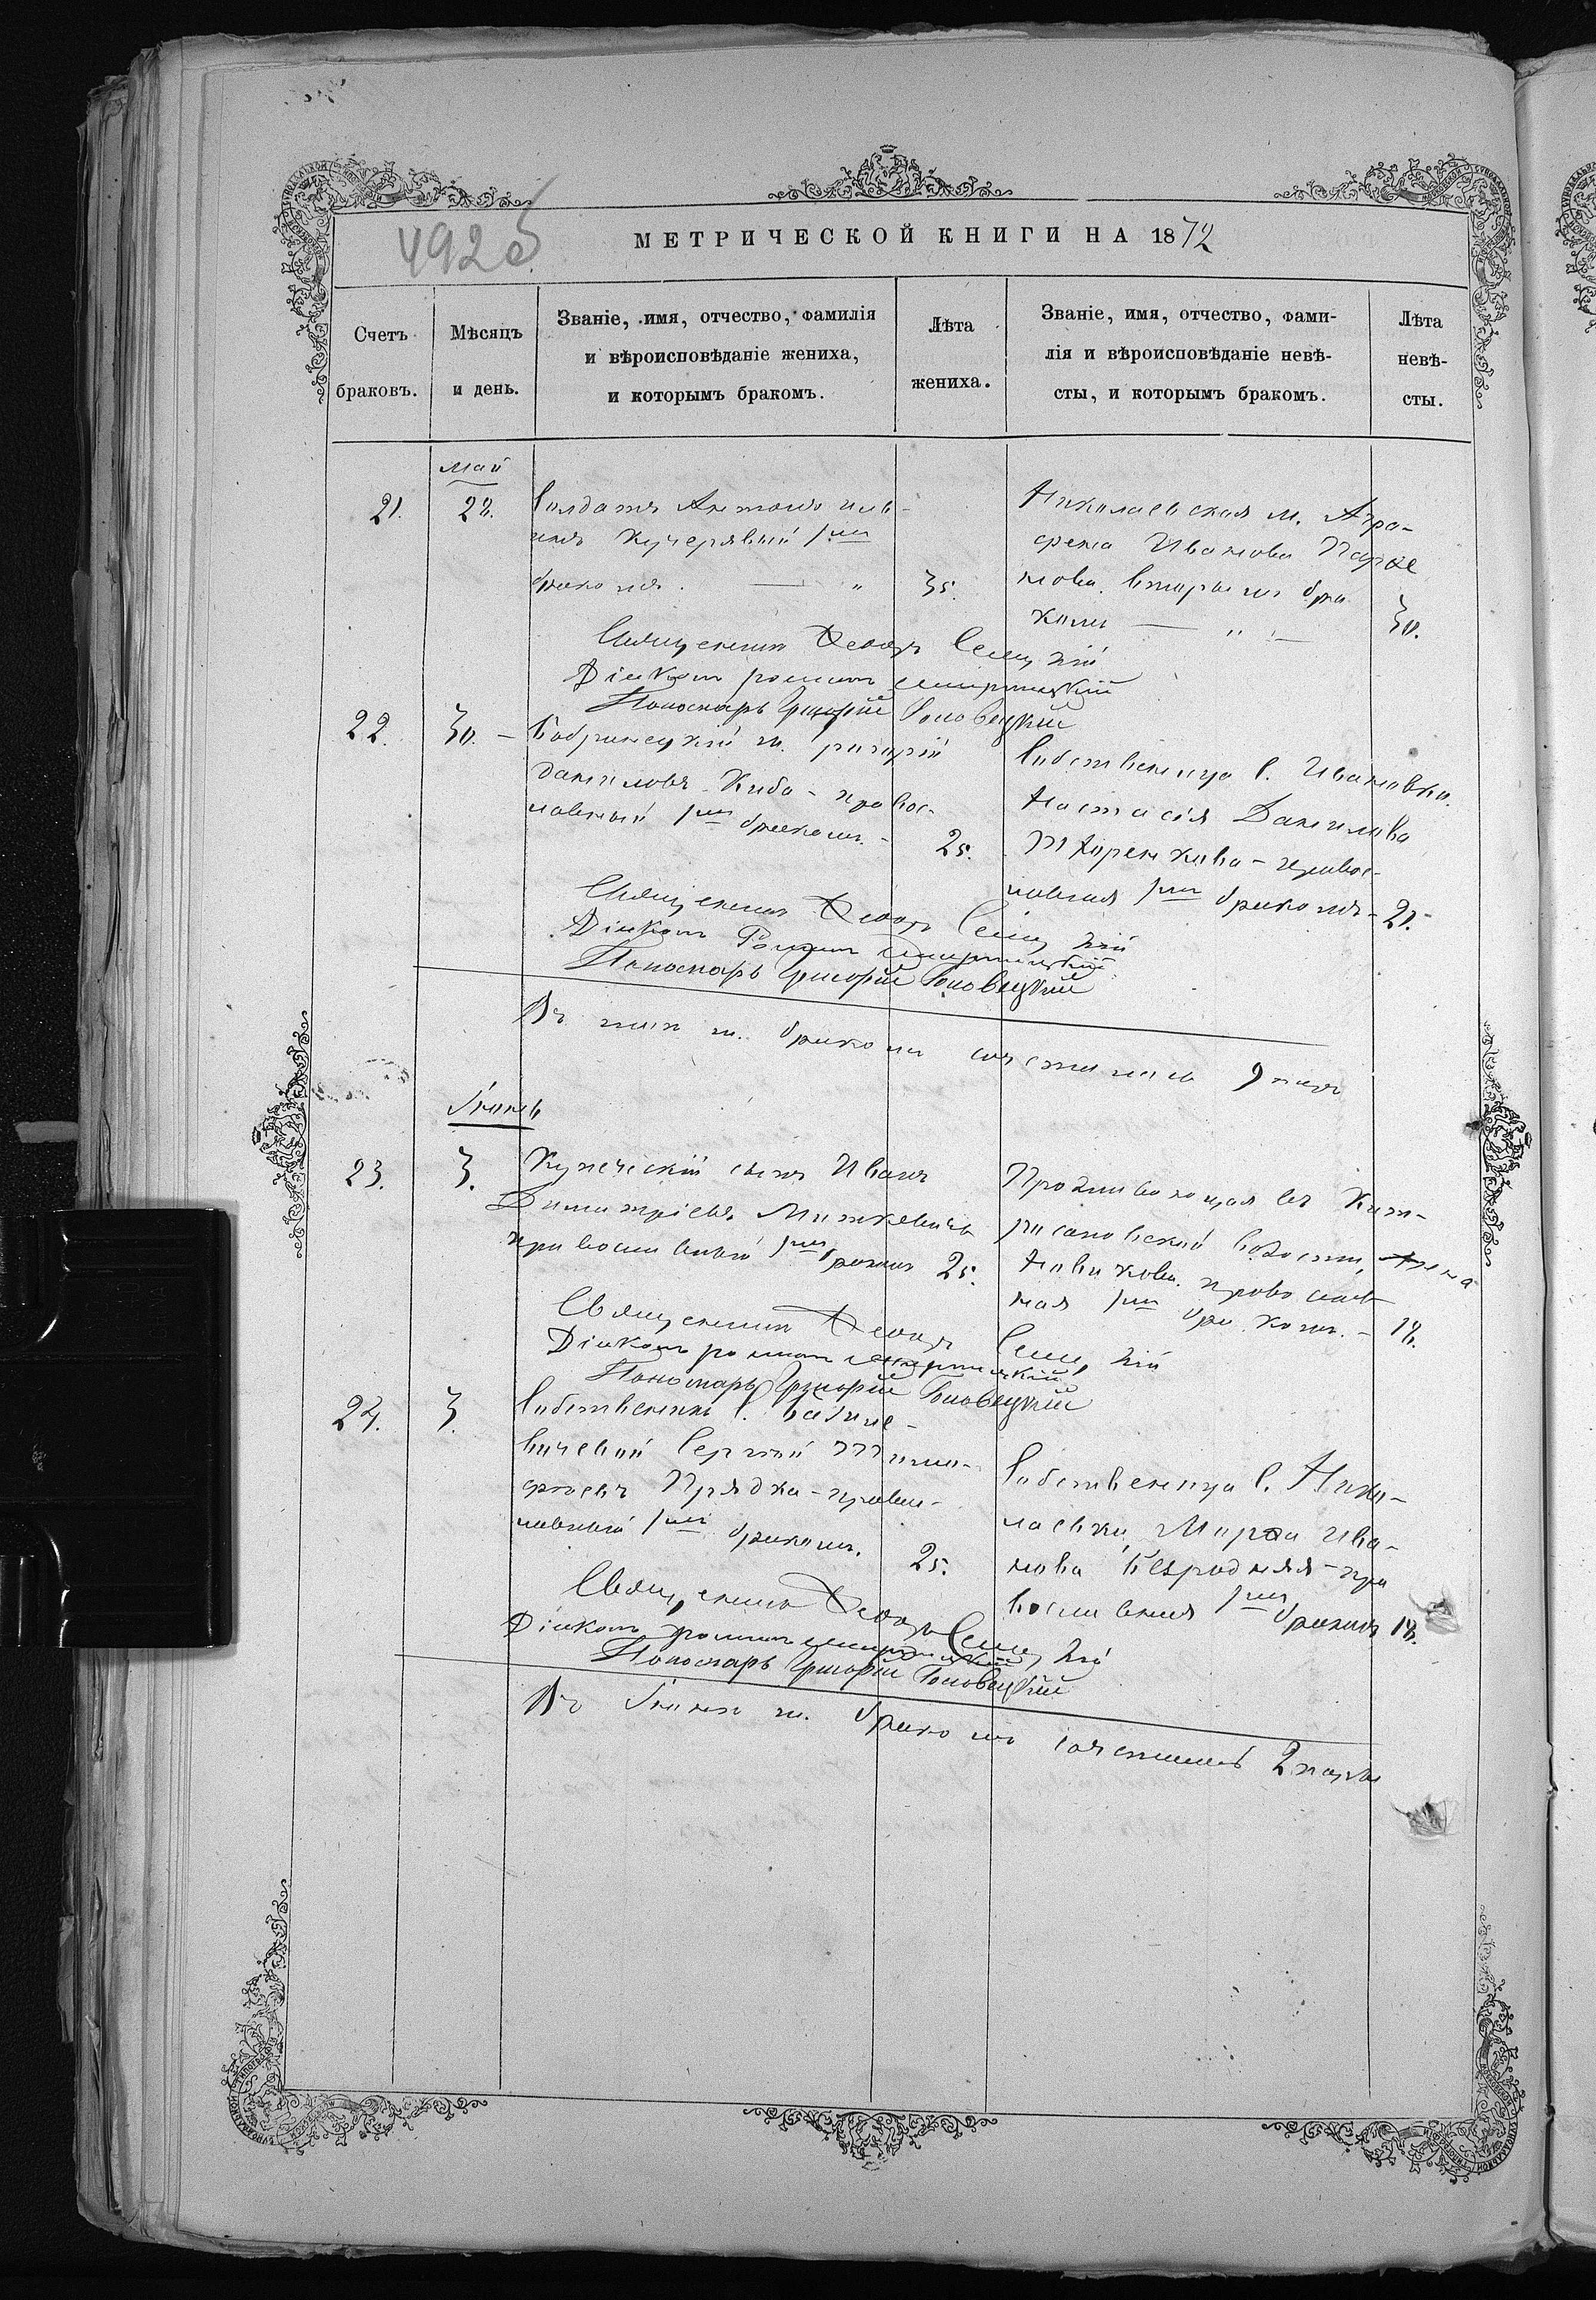 4925
МЕТРИЧЕСКОЙ КНИГИ НА 1872
Счетъ браковъ.
Мѣсяцъ и день.
Званіе, имя, отчество, фамилія
и вѣроисповѣданіе жениха,
и которымъ бракомъ.
Лѣта
жениха.
Званіе, имя, отчество, фами-
лія и вѣроисповѣданіе невѣ-
сты, и которымъ бракомъ.
Лѣта
невѣ-
сты.
Май
21.
28.
Солдатъ Антонъ
Кучерявый 1мъ
бракомъ. — "
35.
Николаевская м. Агра-
фена Иванова
вторымъ бра
комъ — " —
30.
Священникъ Ѳеодоръ
Діаконъ Романъ
Пономарь Григорій
22.
30. –
Бобринецкій м. Григорій
Даниловъ Киба - правос-
лавный 1мъ бракомъ. -
25.
Собственница с. Ивановки
Настасія Данилова
- правос-
лавная 1мъ бракомъ -
21.
Священникъ Ѳеодоръ
Діаконъ Романъ
Пономарь Григорій
Въ м. бракомъ сочетались 9 паръ
Іюнь
23.
3.
Купеческій сынъ Иванъ
Димитріевъ
православный 1мъ бракомъ
25.
Проживающая въ
волости, Анна
Новикова православ
ная 1мъ бракомъ. -
18.
Священникъ Ѳеодоръ
Діаконъ Романъ
Пономарь Григорій
24.
3.
Собственникъ с.
Сергій Тимо-
фѣевъ Прядка - право-
лавный 1мъ бракомъ.
25.
Собственница с. Нико-
лаевки Марѳа Ива-
нова Безродняя - пра
вославная 1мъ бракомъ
18.
Священникъ Ѳеодоръ
Діаконъ Романъ
Пономарь Григорій
Въ Іюнѣ м. бракомъ сочетались 2 пары